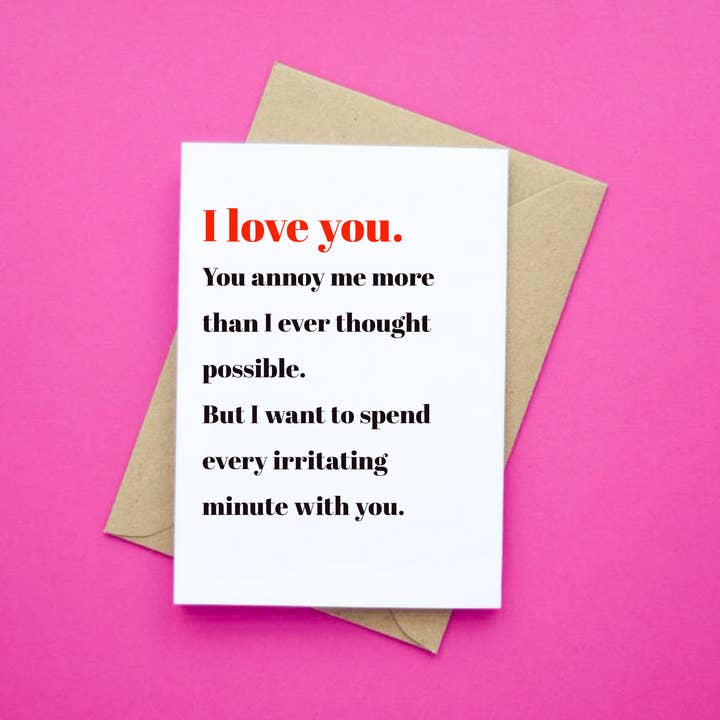 I love you.
You annoy me more
than I ever thought
possible.
But I want to spend
every irritating
minute with you.